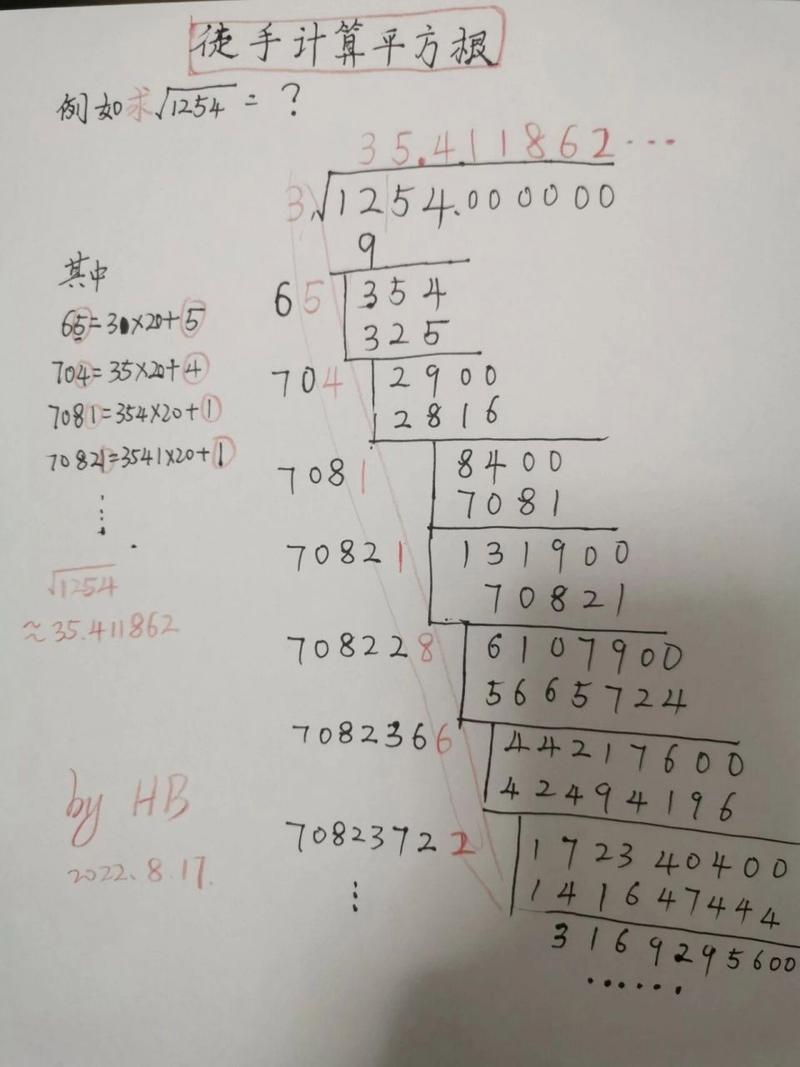 徒手计算平方根
例如求√1254 = ?
35.411862···
3√1254.000000
9
65 354
325
704 2900
2816
7081 8400
7081
70821 131900
70821
708228 6107900
5665724
7082366 44217600
42494196
70823722 172340400
141647444
3169295600
······
其中
65=30×20+5
704=35×20+4
7081=354×20+1
70821=3541×20+1
⋮
√1254
≈35.411862
by HB
2022.8.17.